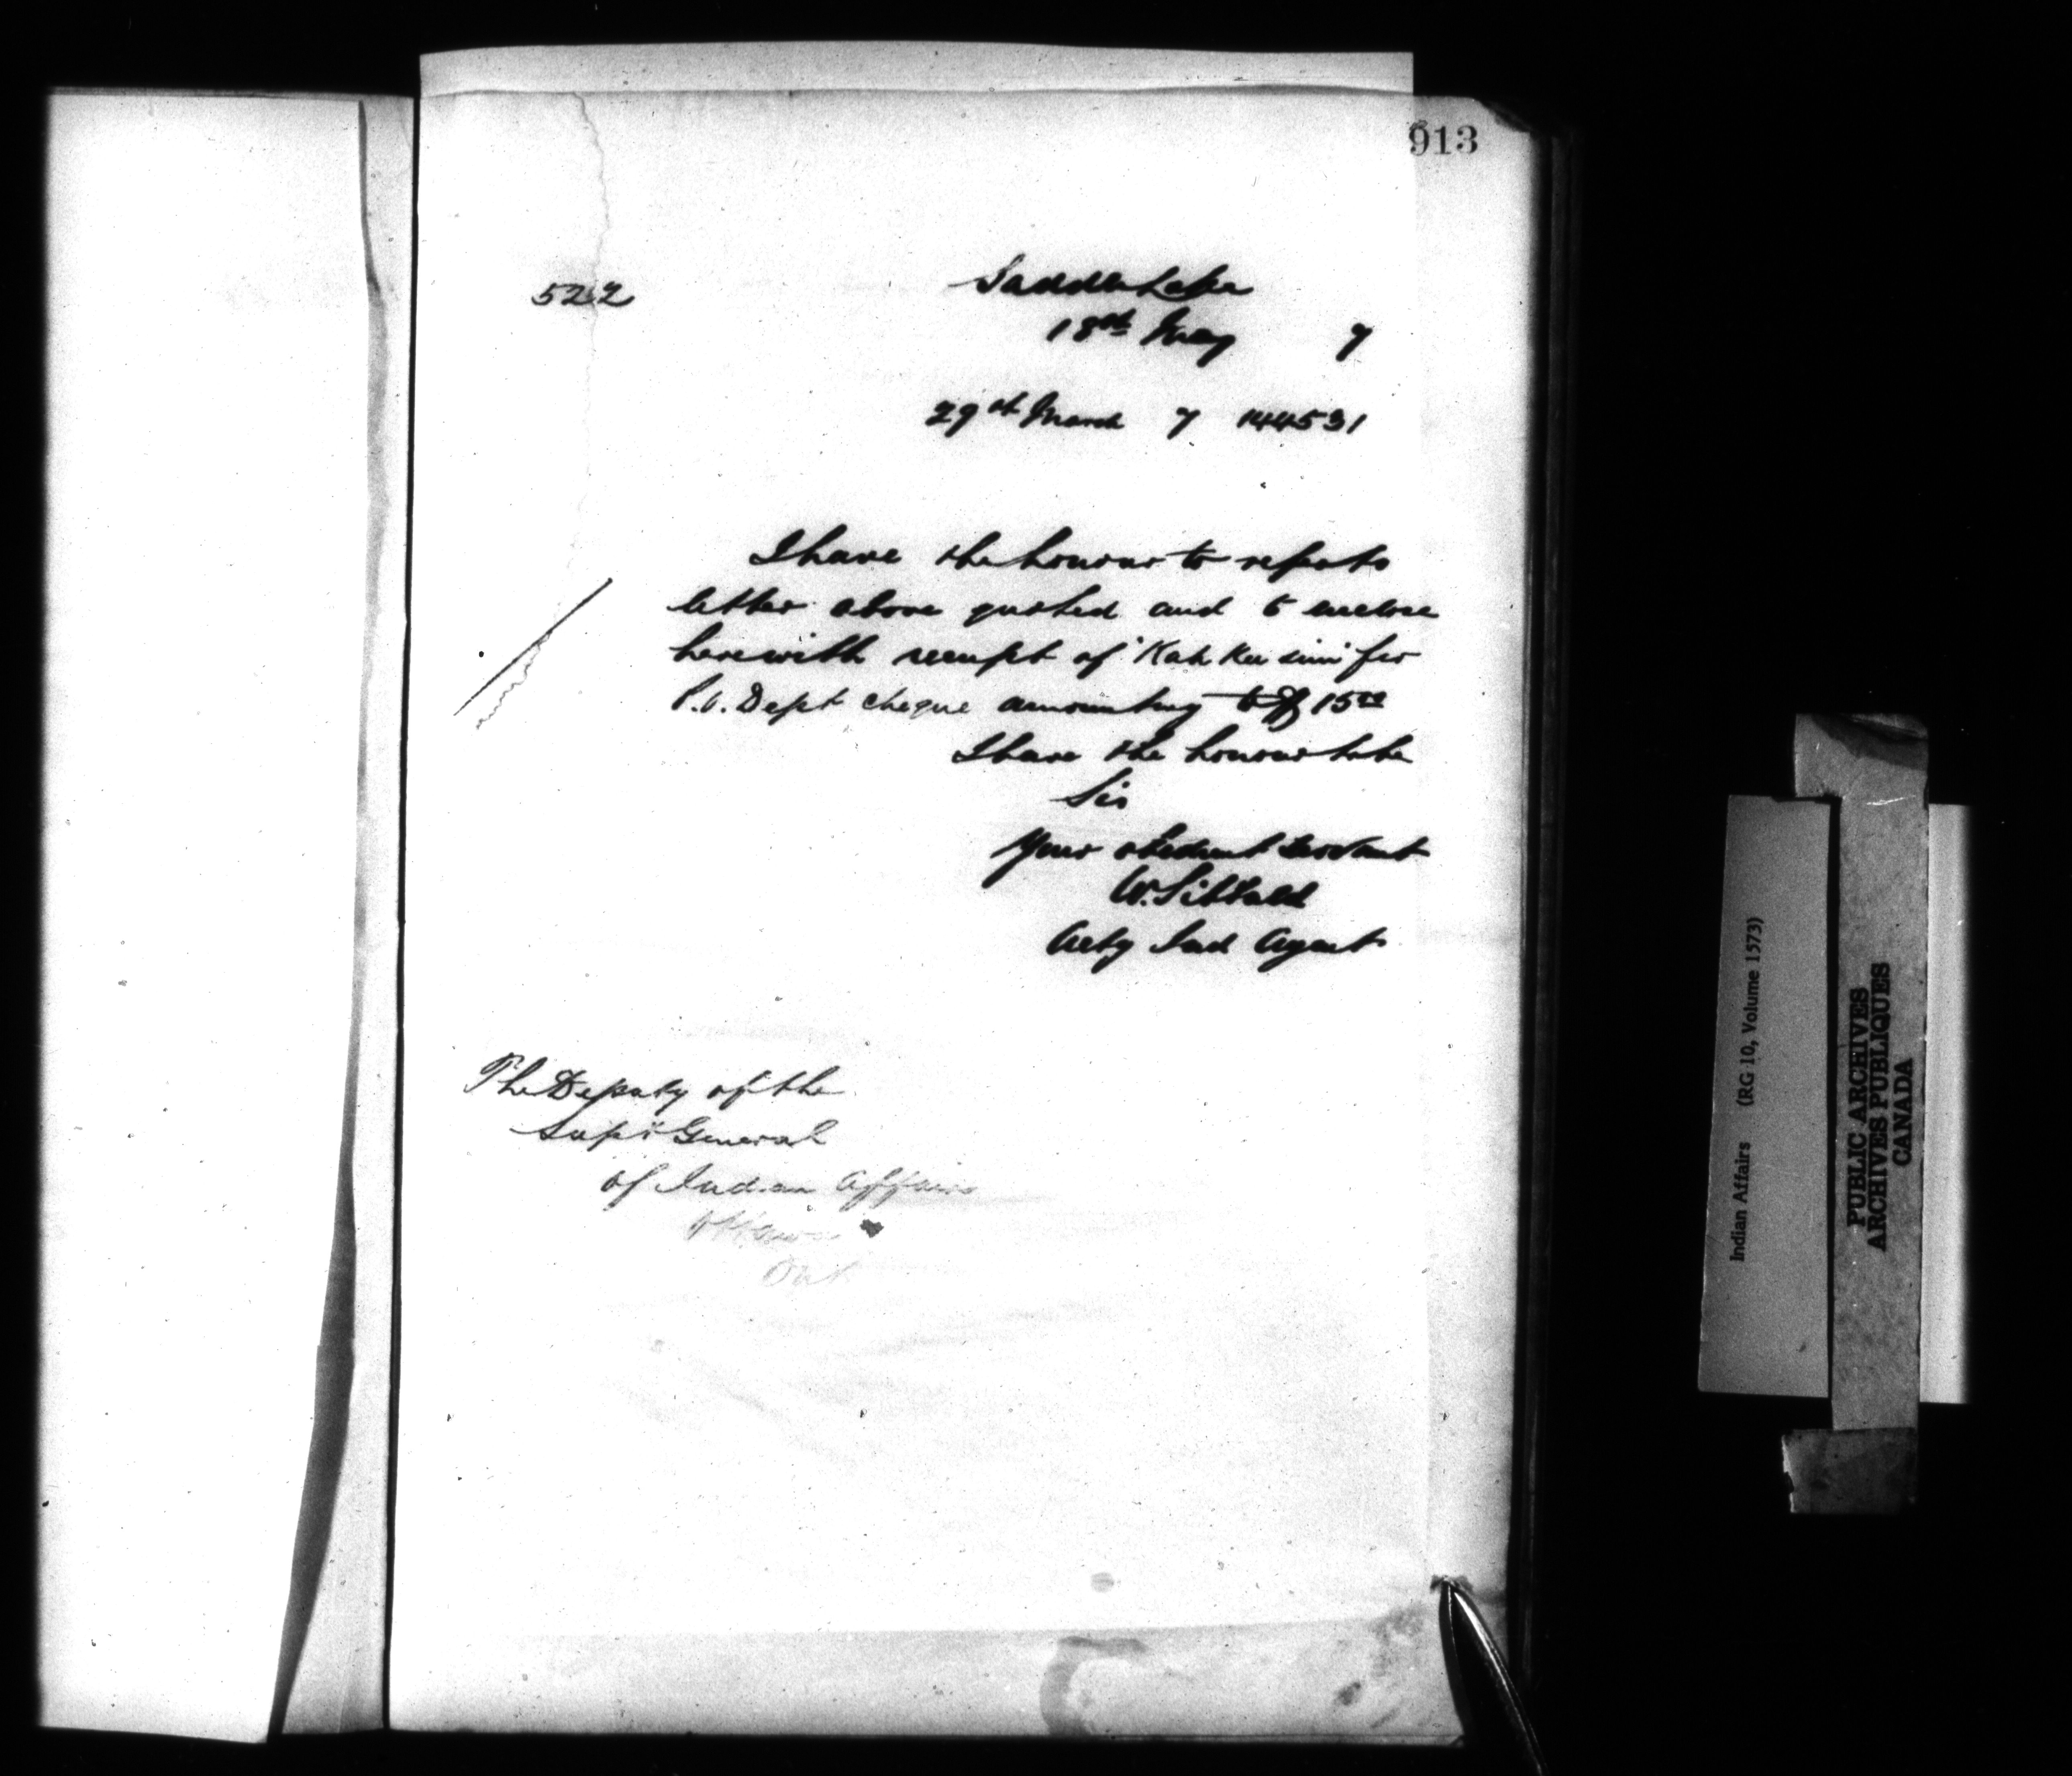 913
522
Saddle Lake
18th May 7
29th March 7 144531
I have the honour to refer to
letter above quoted and to enclose
herewith receipt of "Kah Kee sim" for
P.O. Dept cheque amounting to $15.00
I have the honour to be
Sir
Your obedient servant
W. Sibbald
Actg Ind Agent
The Deputy of the
Supt General
of Indian Affairs
Ottawa
Ont
Indian Affairs (RG 10, Volume 1573)
PUBLIC ARCHIVES
ARCHIVES PUBLIQUES
CANADA